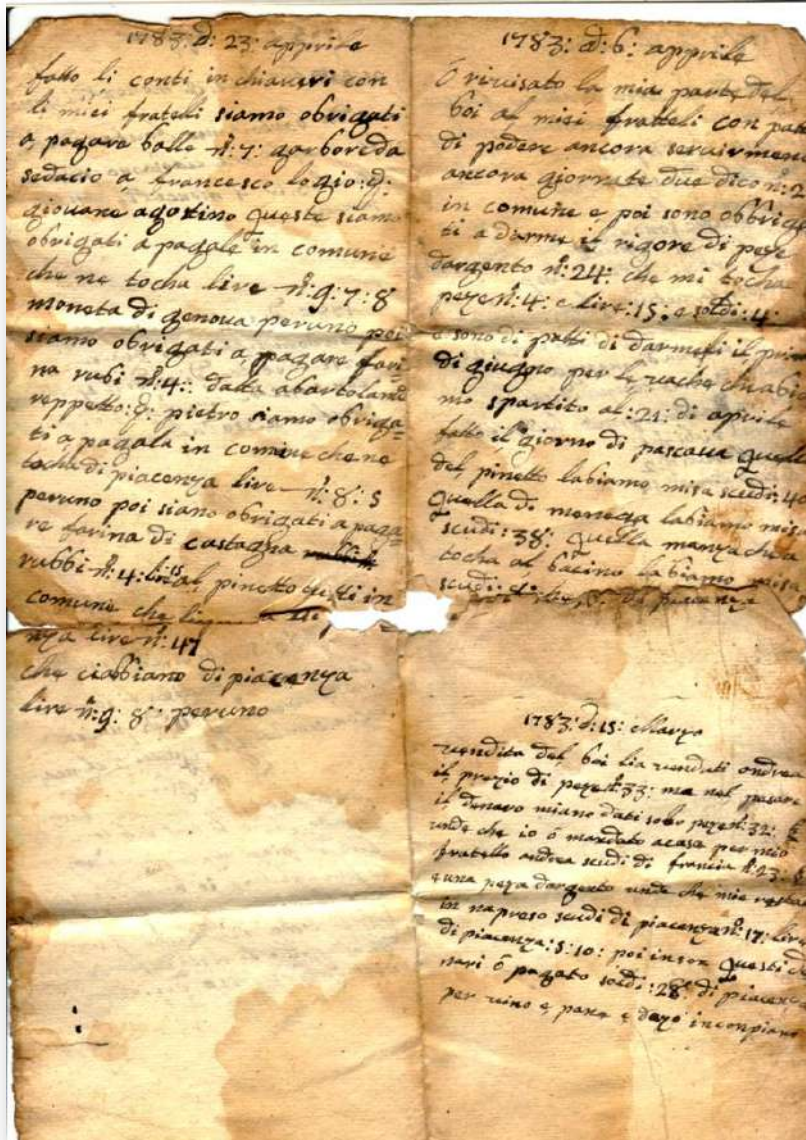 1783: d: 23: apprile
fatto li conti in chiaveri con
li miei fratelli siamo obrigati
a pagare balle n:7: garbore da
sedacio a francesco :q:
giouane agostino queste siamo
obrigati a pagale in comune
che ne tocha lire n:9:7:8
moneta di genova peruno poi
siamo obrigati a pagare fari
na rubi n:4: datta abartolame
reppetto:q: pietro siamo obriga=
ti a pagala in comine che ne
tocha di piacenza lire n:8:5
peruno poi siano obrigati a paga=
re farina di castagna
rubbi n:4: lire 15 al pinetto questi in
comune che
nza lire n:47
che ciabbiano di piacenza
lire n:9: 8: peruno
1783: d:6: apprile
ó riuisato la mia parte del
boi al miei fratteli con pato
di podere ancora seruirmene
ancora giornate due dico n:2
in comune e poi sono obbriga
ti a darme il rigore di peze
dargento n:24: che mi tocha
peze n:4: e lire:15: e soldi:4:
e sono di patti di darmeli il primo
di giugno per le vache chiabi
mo spartito al:21: di aprile
fatto il giorno di pascaua quella
del pinetto labiamo misa scudi:40
quella di menega labiamo misa
scudi:38: quella manza che a
tocha al bacino labiamo misa
scudi di piacenza
1783: d:15: Marzo
vendita del boi lia venduti andrea
il prezio di peze n:33: ma nel pasare
il denaro miano dati solo peze n:32:
unde che io ó mandato acasa per mio
fratello andrea scudi di francia n:23:
e una peza dargento unde che mie resta
in napreso scudi di piacenza n:17: lire
di piacenza:5:10: poi in son questi de
nari ó pagato soldi:28: di piacenza
per uino e pane e dazó inconpiano